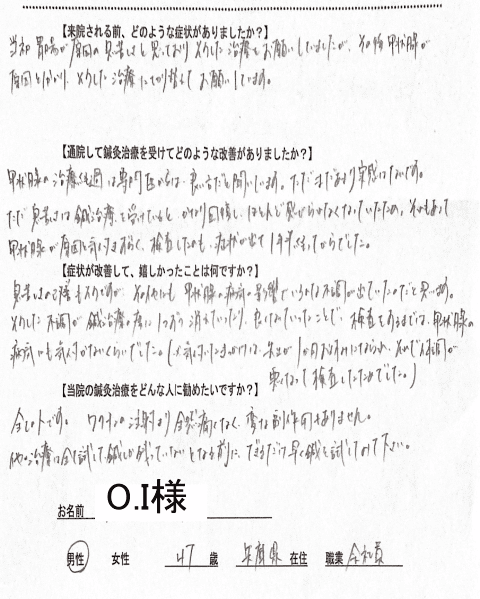 【来院される前、どのような症状がありましたか？】
当初 胃腸が原因の息苦しさと思っており メインした治療をお願いしていましたが、その後 甲状腺が
原因と分かり、メインした治療に切り替えて お願いしています。
【通院して鍼灸治療を受けてどのような改善がありましたか？】
甲状腺の治療経過は専門医からは、良い方だと聞いています。ただまだあまり実感はないです。
ただ息苦しさは鍼治療を受けていると かなり回復し、ほとんど感じられなくなっていたため、それもあって
甲状腺が原因と気づきにくく、検査したのも、症状が出て1年半経ってからでした。
【症状が改善して、嬉しかったことは何ですか？】
息苦しさの改善も大きいですが、その他にも 甲状腺の病気の影響でいろいろな不調が出ていたのだと思います。
そうした不調が 鍼治療の度に1つずつ消えていったり、良くなっていったことで、検査をするまでは、甲状腺の
病気にも気が付かないくらいでした。(気付いたきっかけは、先生が1か月お休みになられ、それで体調が
悪くなって検査したためでした。)
【当院の鍼灸治療をどんな人に勧めたいですか？】
全ての人です。 ワクチンの注射より全然痛くなく、変な副作用もありません。
他の治療は全て試して、鍼しか残っていないとなる前に、できるだけ早く鍼を試してみて下さい。
お名前 O.I様
男性 女性 47 歳 兵庫県 在住 職業 会社員